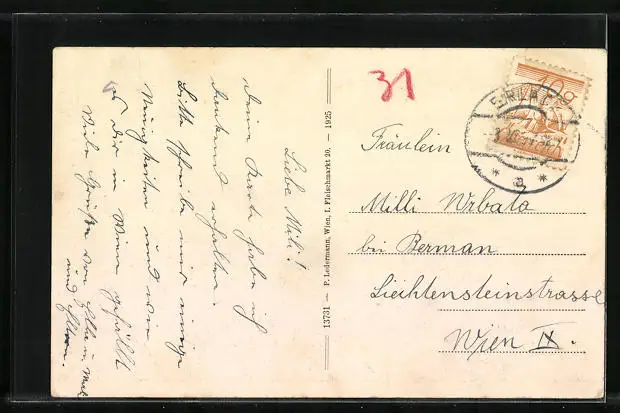 Liebe Mili!
Deine Karte habe ich
dankend erhalten.
Bitte schreibe mir einige
Neuigkeiten und wie
es Dir in Wien gefällt
Viele Grüße von
und Eltern.
13731 — P. Ledermann, Wien, I. Fleischmarkt 20. — 1925
31
10g
Fräulein
Milli Urbata
bei Berman
Liechtensteinstrasse
Wien IX.